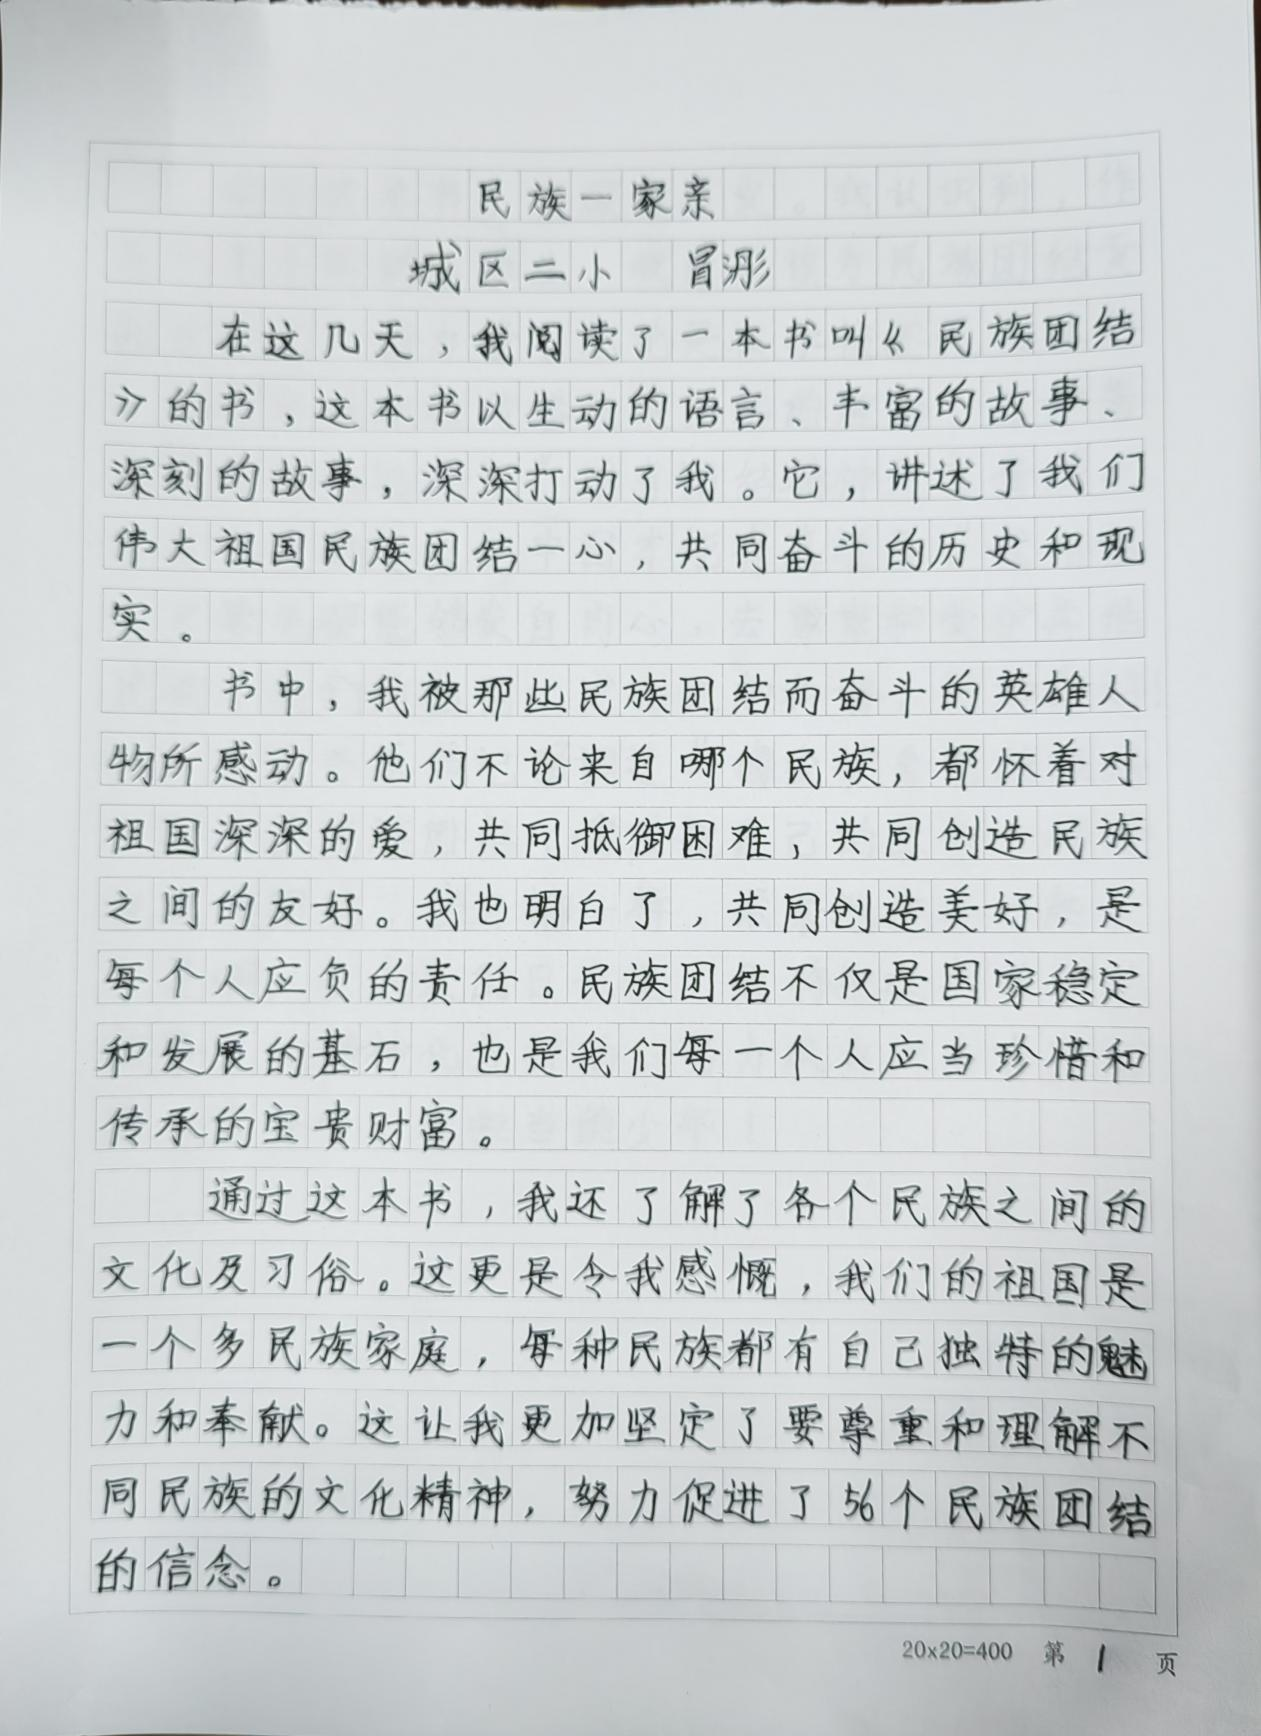 民族一家亲
城区二小 冒浵
在这几天，我阅读了一本书叫《民族团结
》的书，这本书以生动的语言、丰富的故事、
深刻的故事，深深打动了我。它，讲述了我们
伟大祖国民族团结一心，共同奋斗的历史和现
实。
书中，我被那些民族团结而奋斗的英雄人
物所感动。他们不论来自哪个民族，都怀着对
祖国深深的爱，共同抵御困难，共同创造民族
之间的友好。我也明白了，共同创造美好，是
每个人应负的责任。民族团结不仅是国家稳定
和发展的基石，也是我们每一个人应当珍惜和
传承的宝贵财富。
通过这本书，我还了解了各个民族之间的
文化及习俗。这更是令我感慨，我们的祖国是
一个多民族家庭，每种民族都有自己独特的魅
力和奉献。这让我更加坚定了要尊重和理解不
同民族的文化精神，努力促进了56个民族团结
的信念。
20x20=400 第 1 页